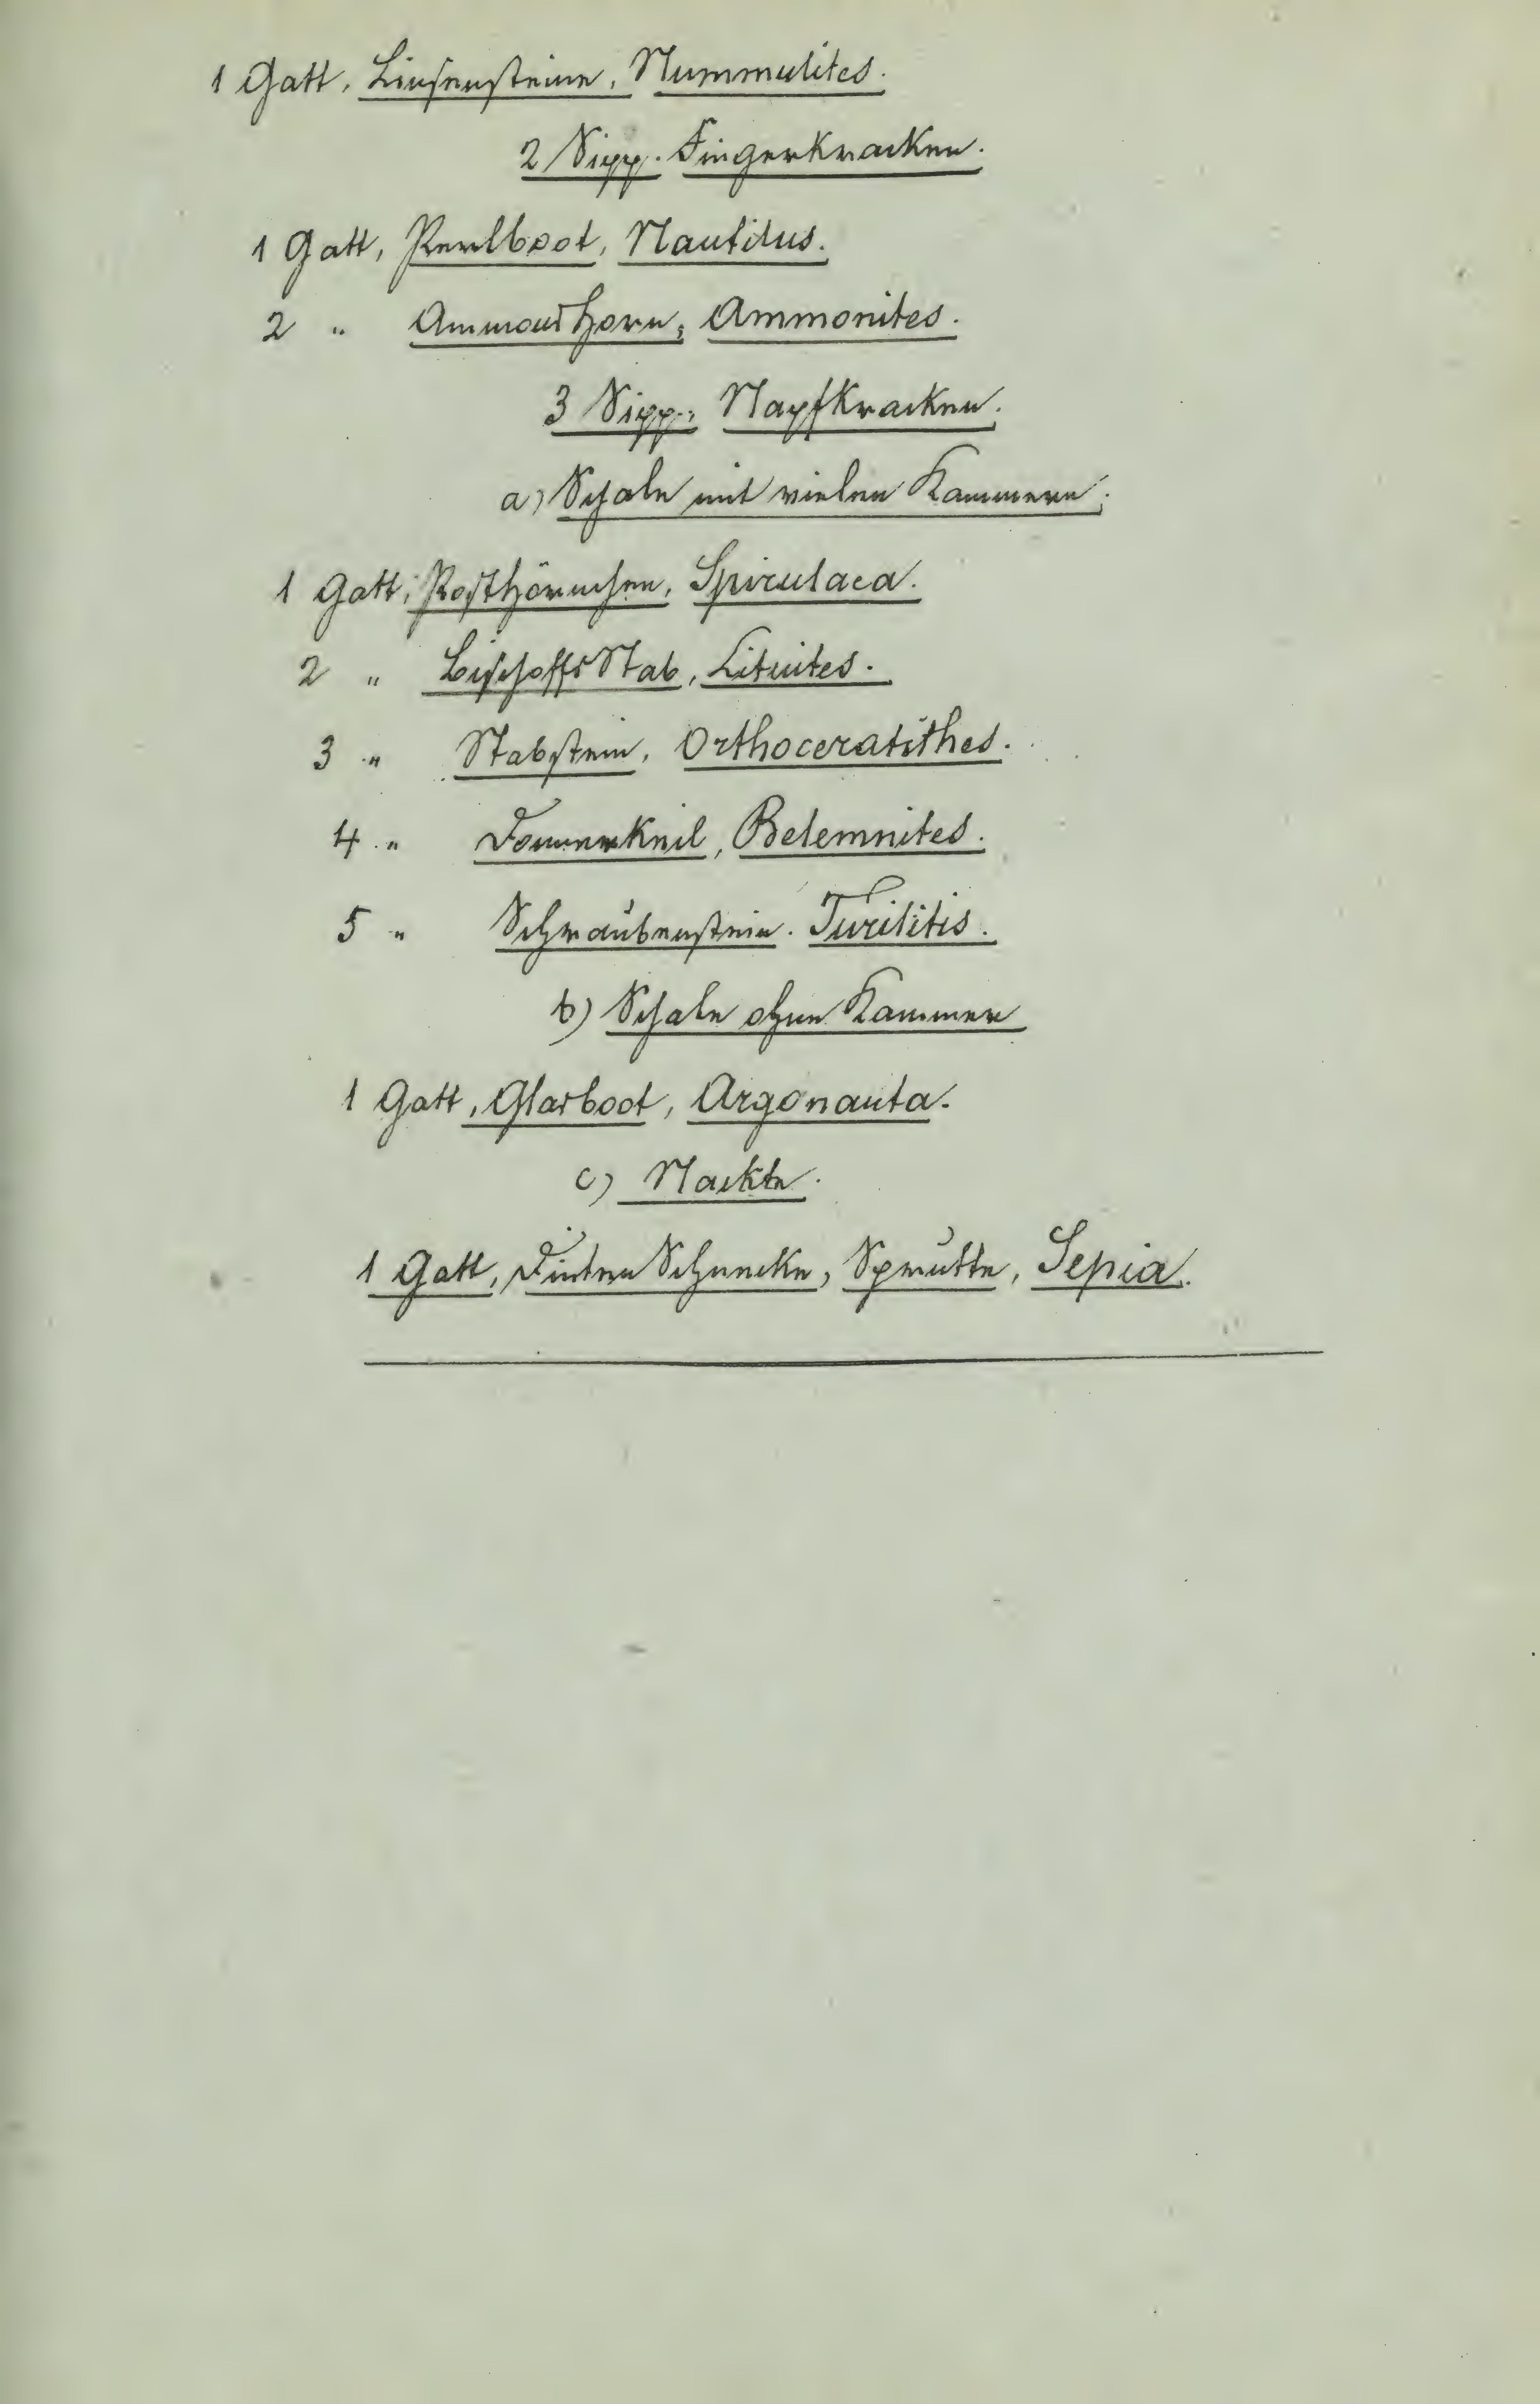 1 Gatt, Linsensteine, Nummulites.
2 Sipp. Fingerkracken.
1 Gatt, Perlboot, Nautilus.
2 " Ammonshorn, Ammonites.
3 Sipp. Napfkracken.
a) Schale mit vielen Kammern.
1 Gatt, Posthörnchen, Spirulaea.
2 " Bischoffs Stab, Lituites.
3 " Stabstein, Orthoceratithes.
4 " Donnerkeil, Belemnites.
5 " Schraubenstein. Turilitis.
b) Schale ohne Kammer
1 Gatt, Glasboot, Argonauta.
c) Nackte.
1 Gatt, Dinten Schnecke, Sprutte, Sepia.